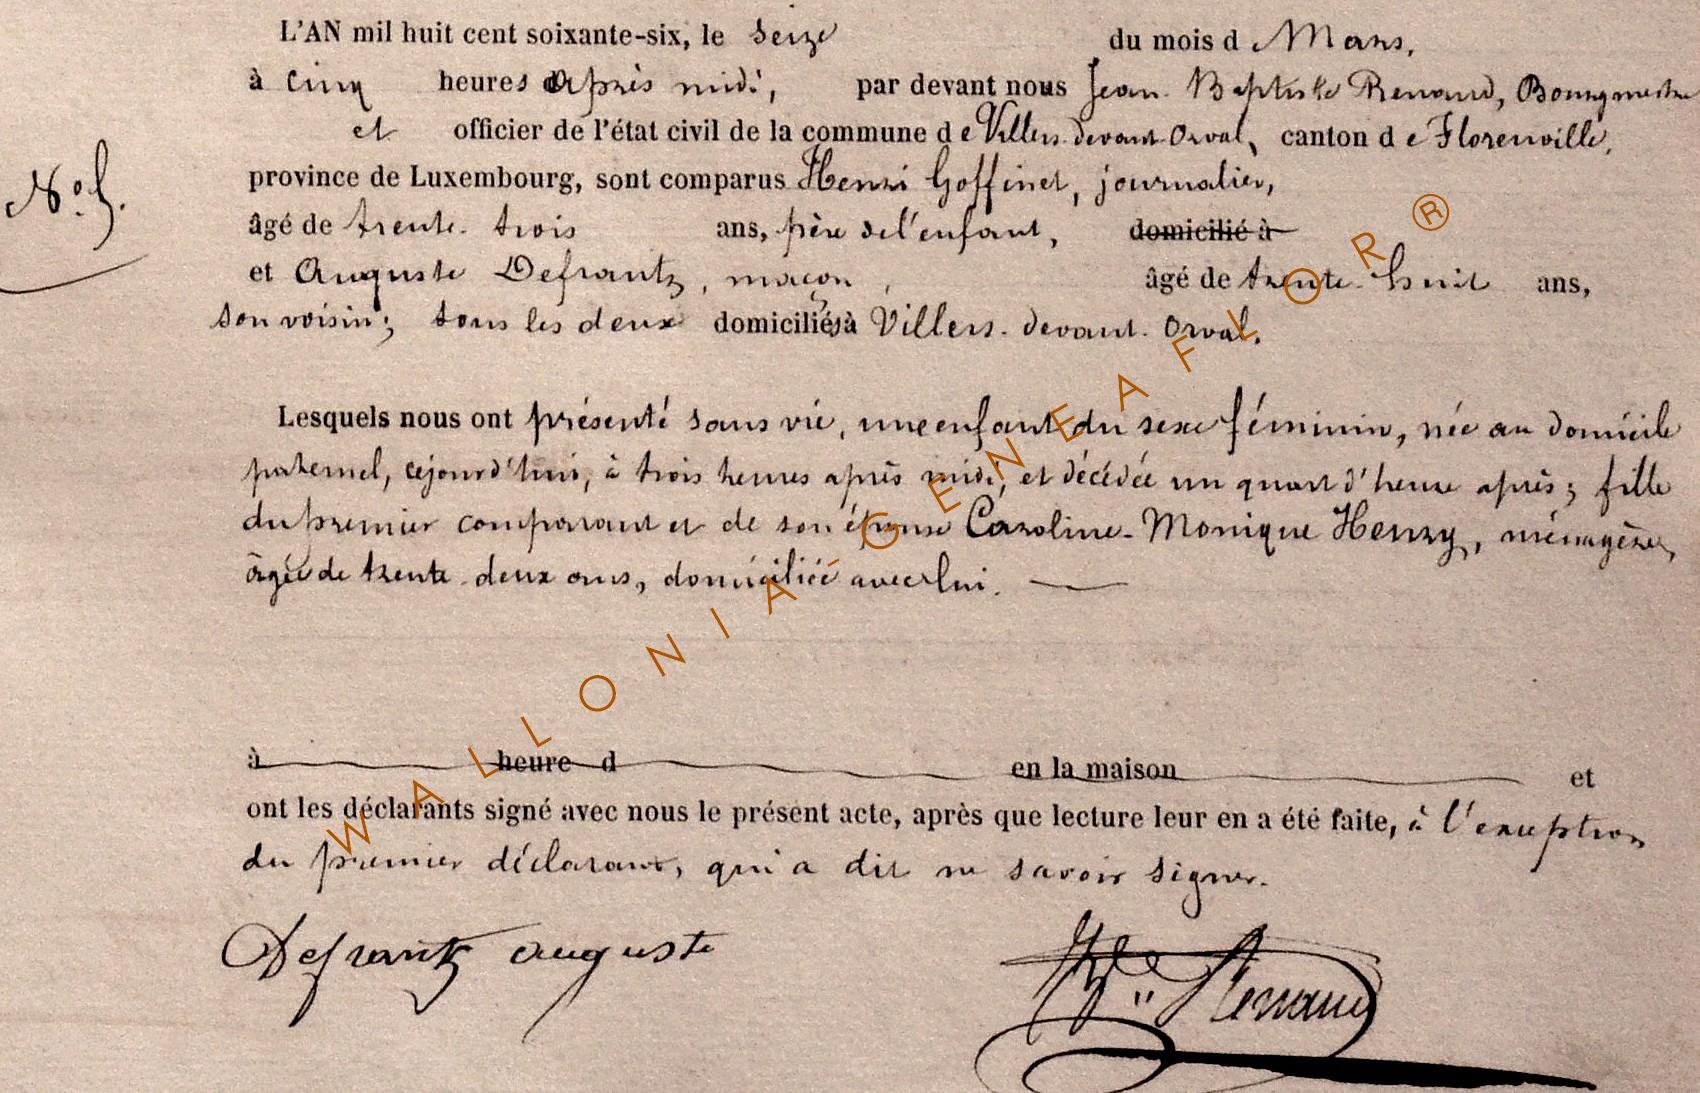 L'AN mil huit cent soixante-six, le seize du mois d Mars,
à cinq heures après midi, par devant nous Jean Baptiste Renaud, Bourgmestre
et officier de l'état civil de la commune d e Villers-devant-Orval, canton d e Florenville,
province de Luxembourg, sont comparus Henri Goffinet, journalier,
N° 5.
âgé de trente-trois ans, père de l'enfant, domicilié à
et Auguste Defrantz, maçon, âgé de trente-huit ans,
son voisin; tous les deux domiciliés à Villers-devant-Orval.
Lesquels nous ont présenté sans vie, une enfant du sexe féminin, née au domicile
paternel, cejourd'hui, à trois heures après midi, et décédée un quart d'heure après; fille
du premier comparant et de son épouse Caroline-Monique Henry, ménagère,
âgée de trente-deux ans, domiciliée avec lui.
à heure d en la maison et
ont les déclarants signé avec nous le présent acte, après que lecture leur en a été faite, à l'exception
du premier déclarant, qui a dit ne savoir signer.
Defrantz auguste
Renaud
WALLONIA-GENEAFLOR®